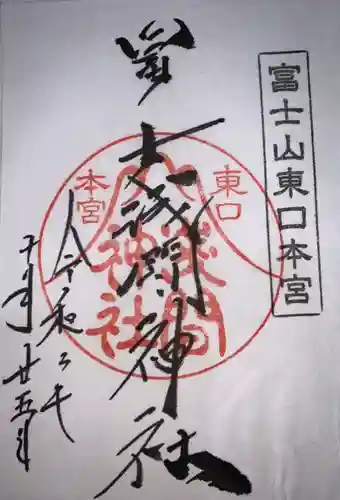 富士山東口本宮
冨士浅間神社
東口
本宮
浅間
神社
令和二年
十月廿五日